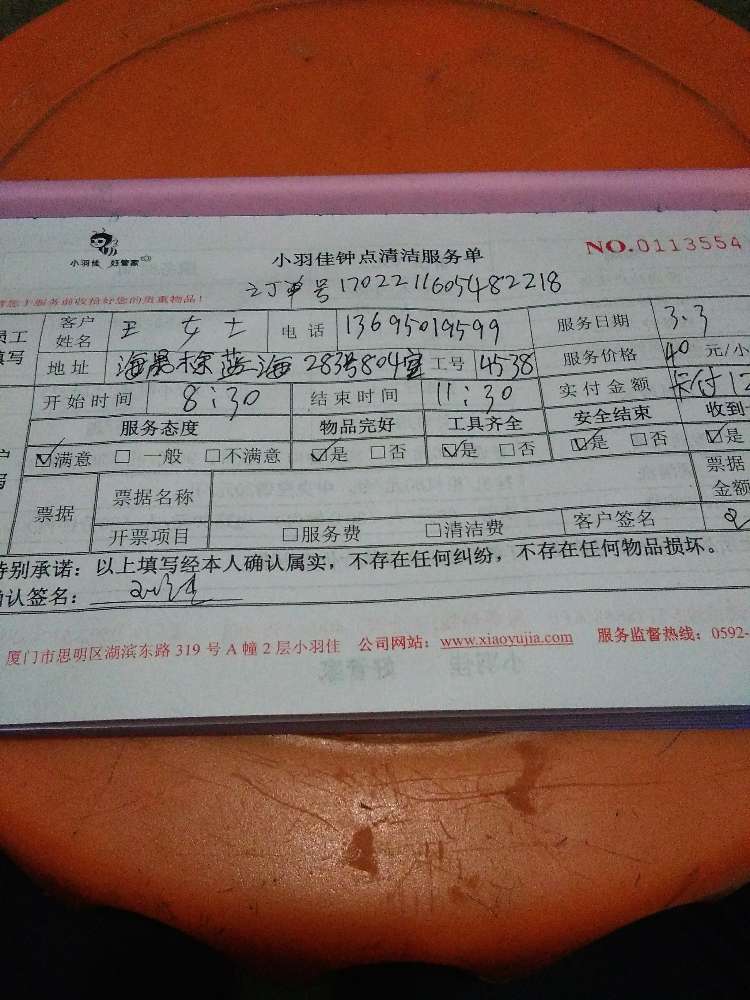 小羽佳 好管家
小羽佳钟点清洁服务单
NO.0113554
订单号17022211605482218
请您于服务前收拾好您的贵重物品!
员工 客户姓名 王 女士 电话 13695019599 服务日期 3.3
填写 地址 海 蓝海 283号804室 工号 4538 服务价格 40 元/小
开始时间 8:30 结束时间 11:30 实付金额 卡付12
服务态度 物品完好 工具齐全 安全结束 收到
☑满意 □ 一般 □不满意 ☑是 □否 ☑是 □否 ☑是 □否 ☑是
票据 票据名称 票据金额
开票项目 □服务费 □清洁费 客户签名
特别承诺:以上填写经本人确认属实,不存在任何纠纷,不存在任何物品损坏。
确认签名:
厦门市思明区湖滨东路 319 号 A 幢 2 层小羽佳 公司网站:www.xiaoyujia.com 服务监督热线:0592-